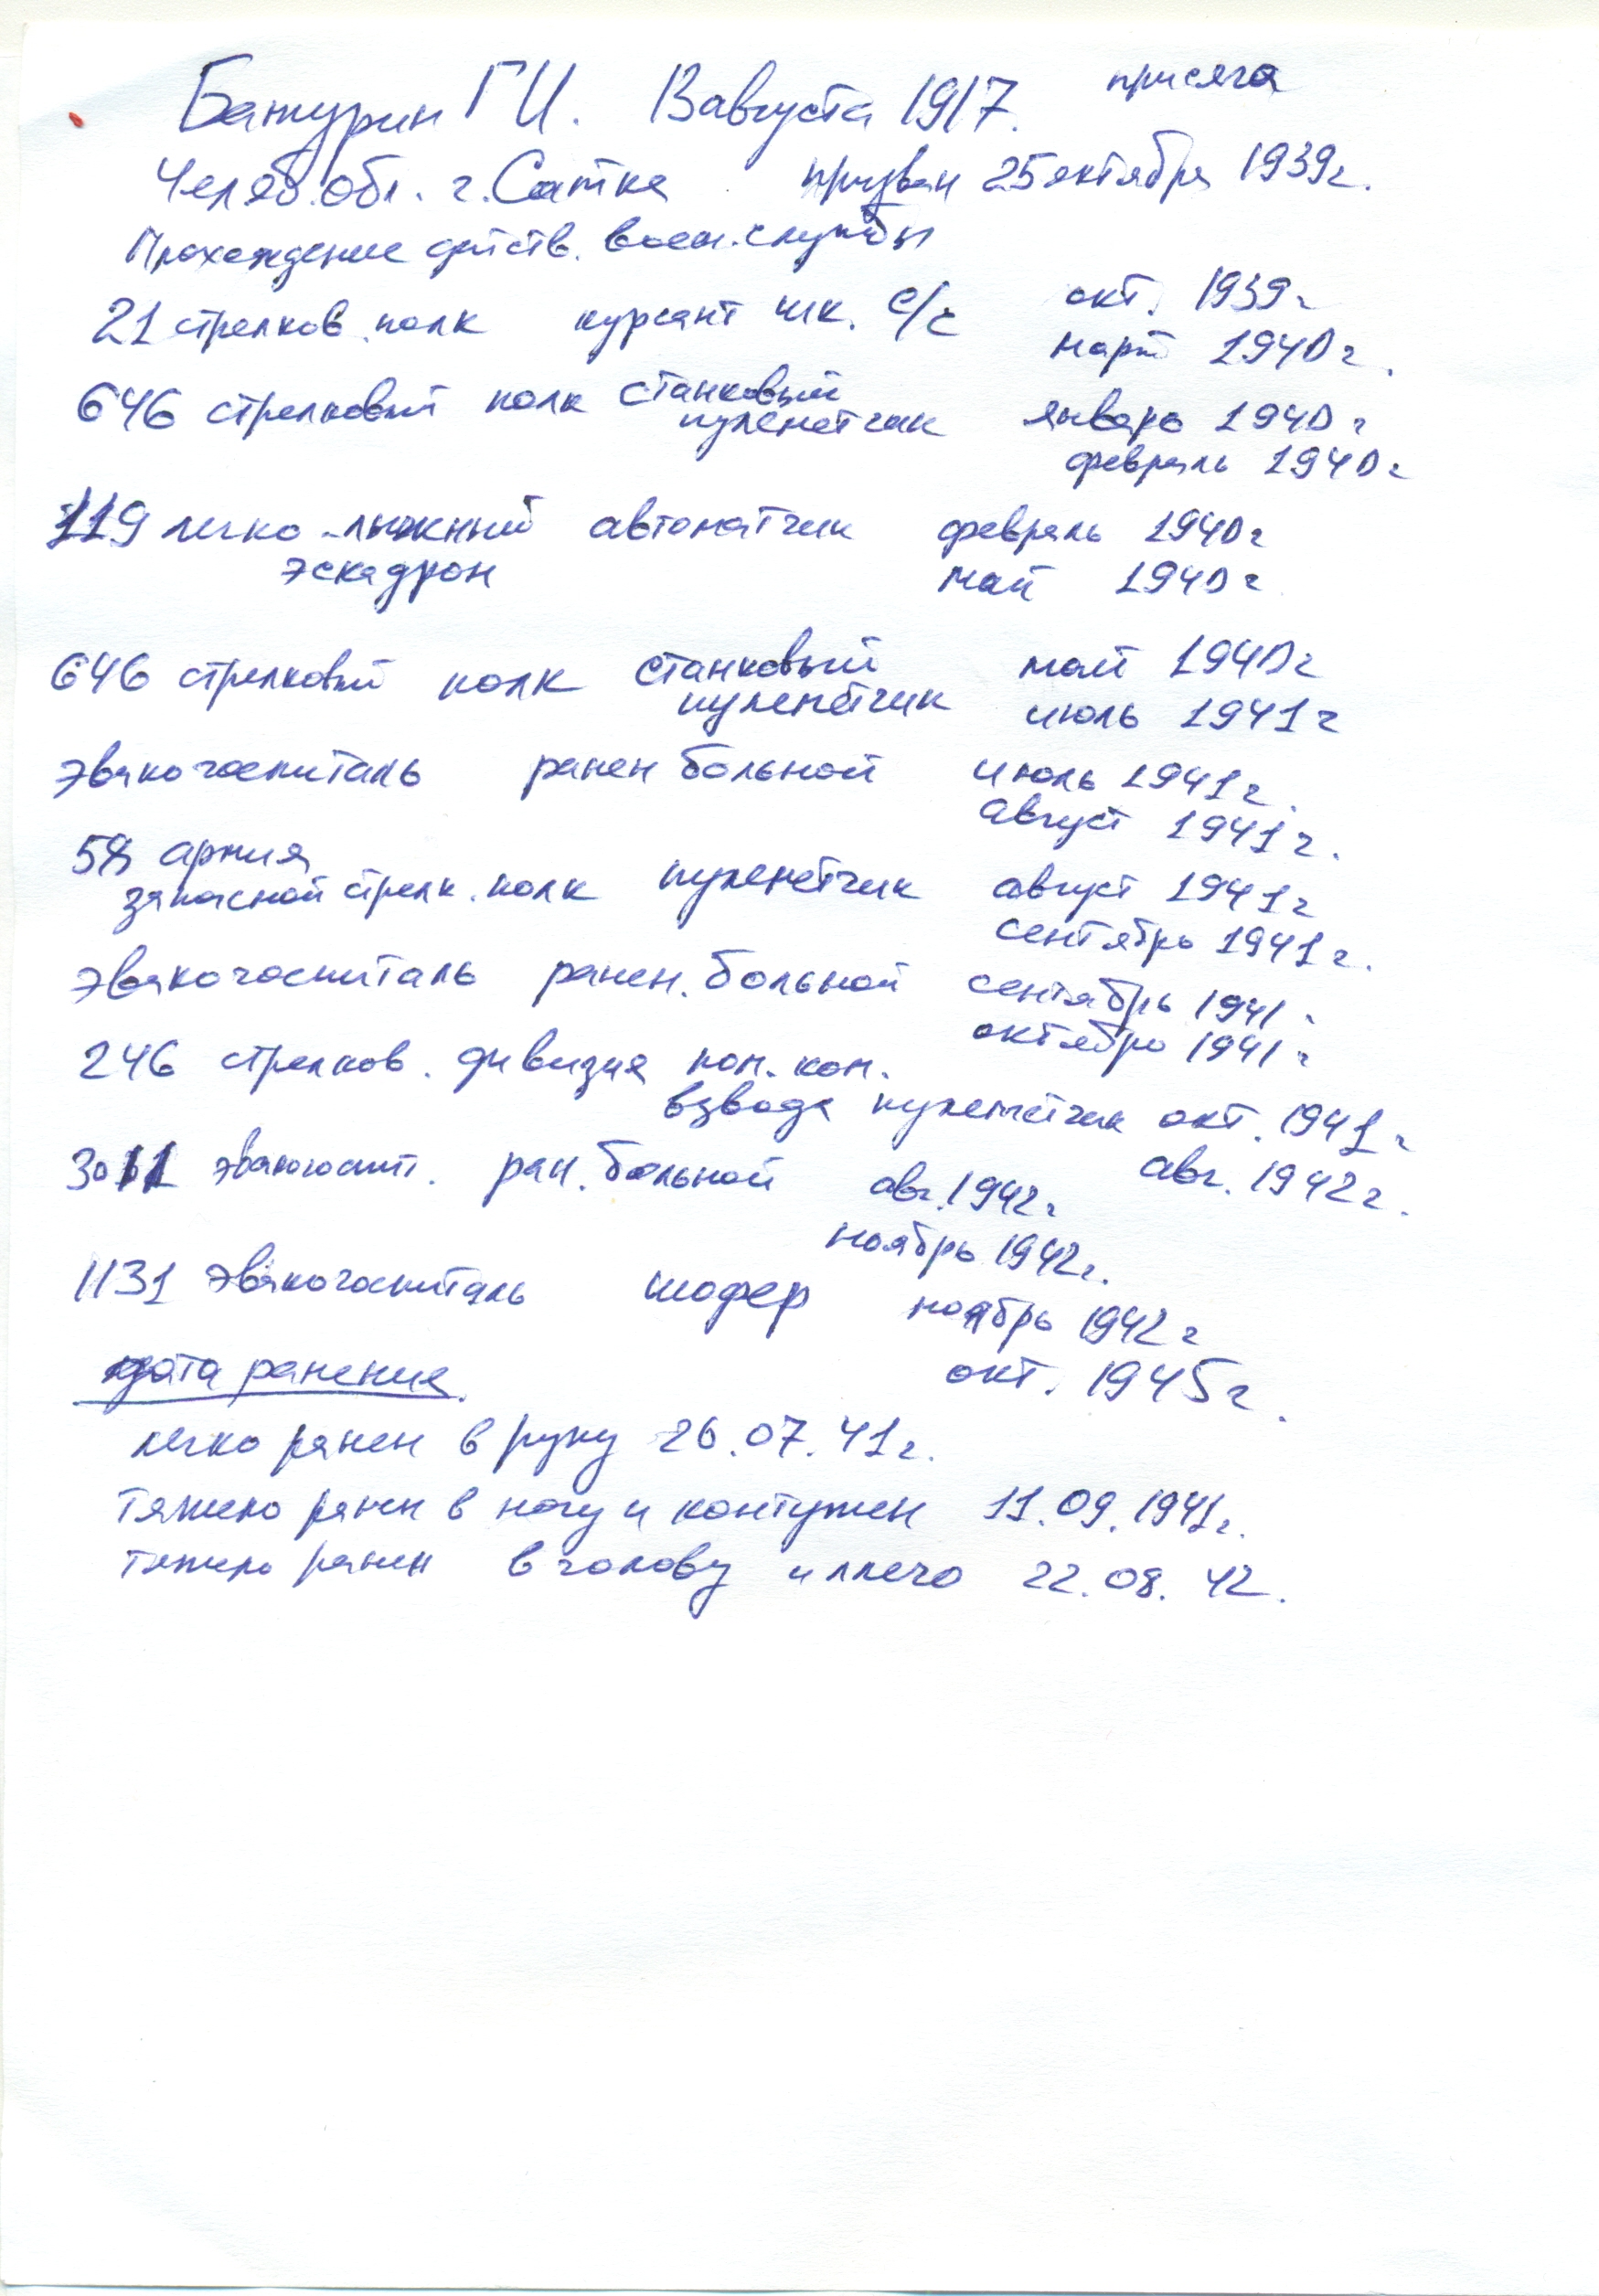 Батурин Г И. 13 августа 1917. присяга
Челяб. обл. г. Сатка призван 25 октября 1939г.
Прохождение действ. воен. службы
21 стрелков. полк курсант шк. с/с окт. 1939г
март 1940г.
646 стрелковый полк станковый
пулеметчик январь 1940г
февраль 1940г
119 легко-лыжный автоматчик февраль 1940г
эскадрон май 1940г
646 стрелковый полк станковый май 1940г
пулеметчик июль 1941г
эвакогоспиталь ранен больной июль 1941г.
август 1941г.
армия
запасной стрелк. полк пулеметчик август 1941г
сентябрь 1941г.
эвакогоспиталь ранен. больной сентябрь 1941г
октябрь 1941г
246 стрелков. дивизия пом. ком.
взвода пулеметчик окт. 1941г
авг. 1942г.
3011 эвакогоспит. ран. больной авг. 1942г
ноябрь 1942г.
1131 эвакогоспиталь шофер ноябрь 1942г
окт. 1945г.
дата ранения.
легко ранен в руку 26.07.41г.
тяжело ранен в ногу и контужен 11.09.1941г.
тяжело ранен в голову и плечо 22.08.42.